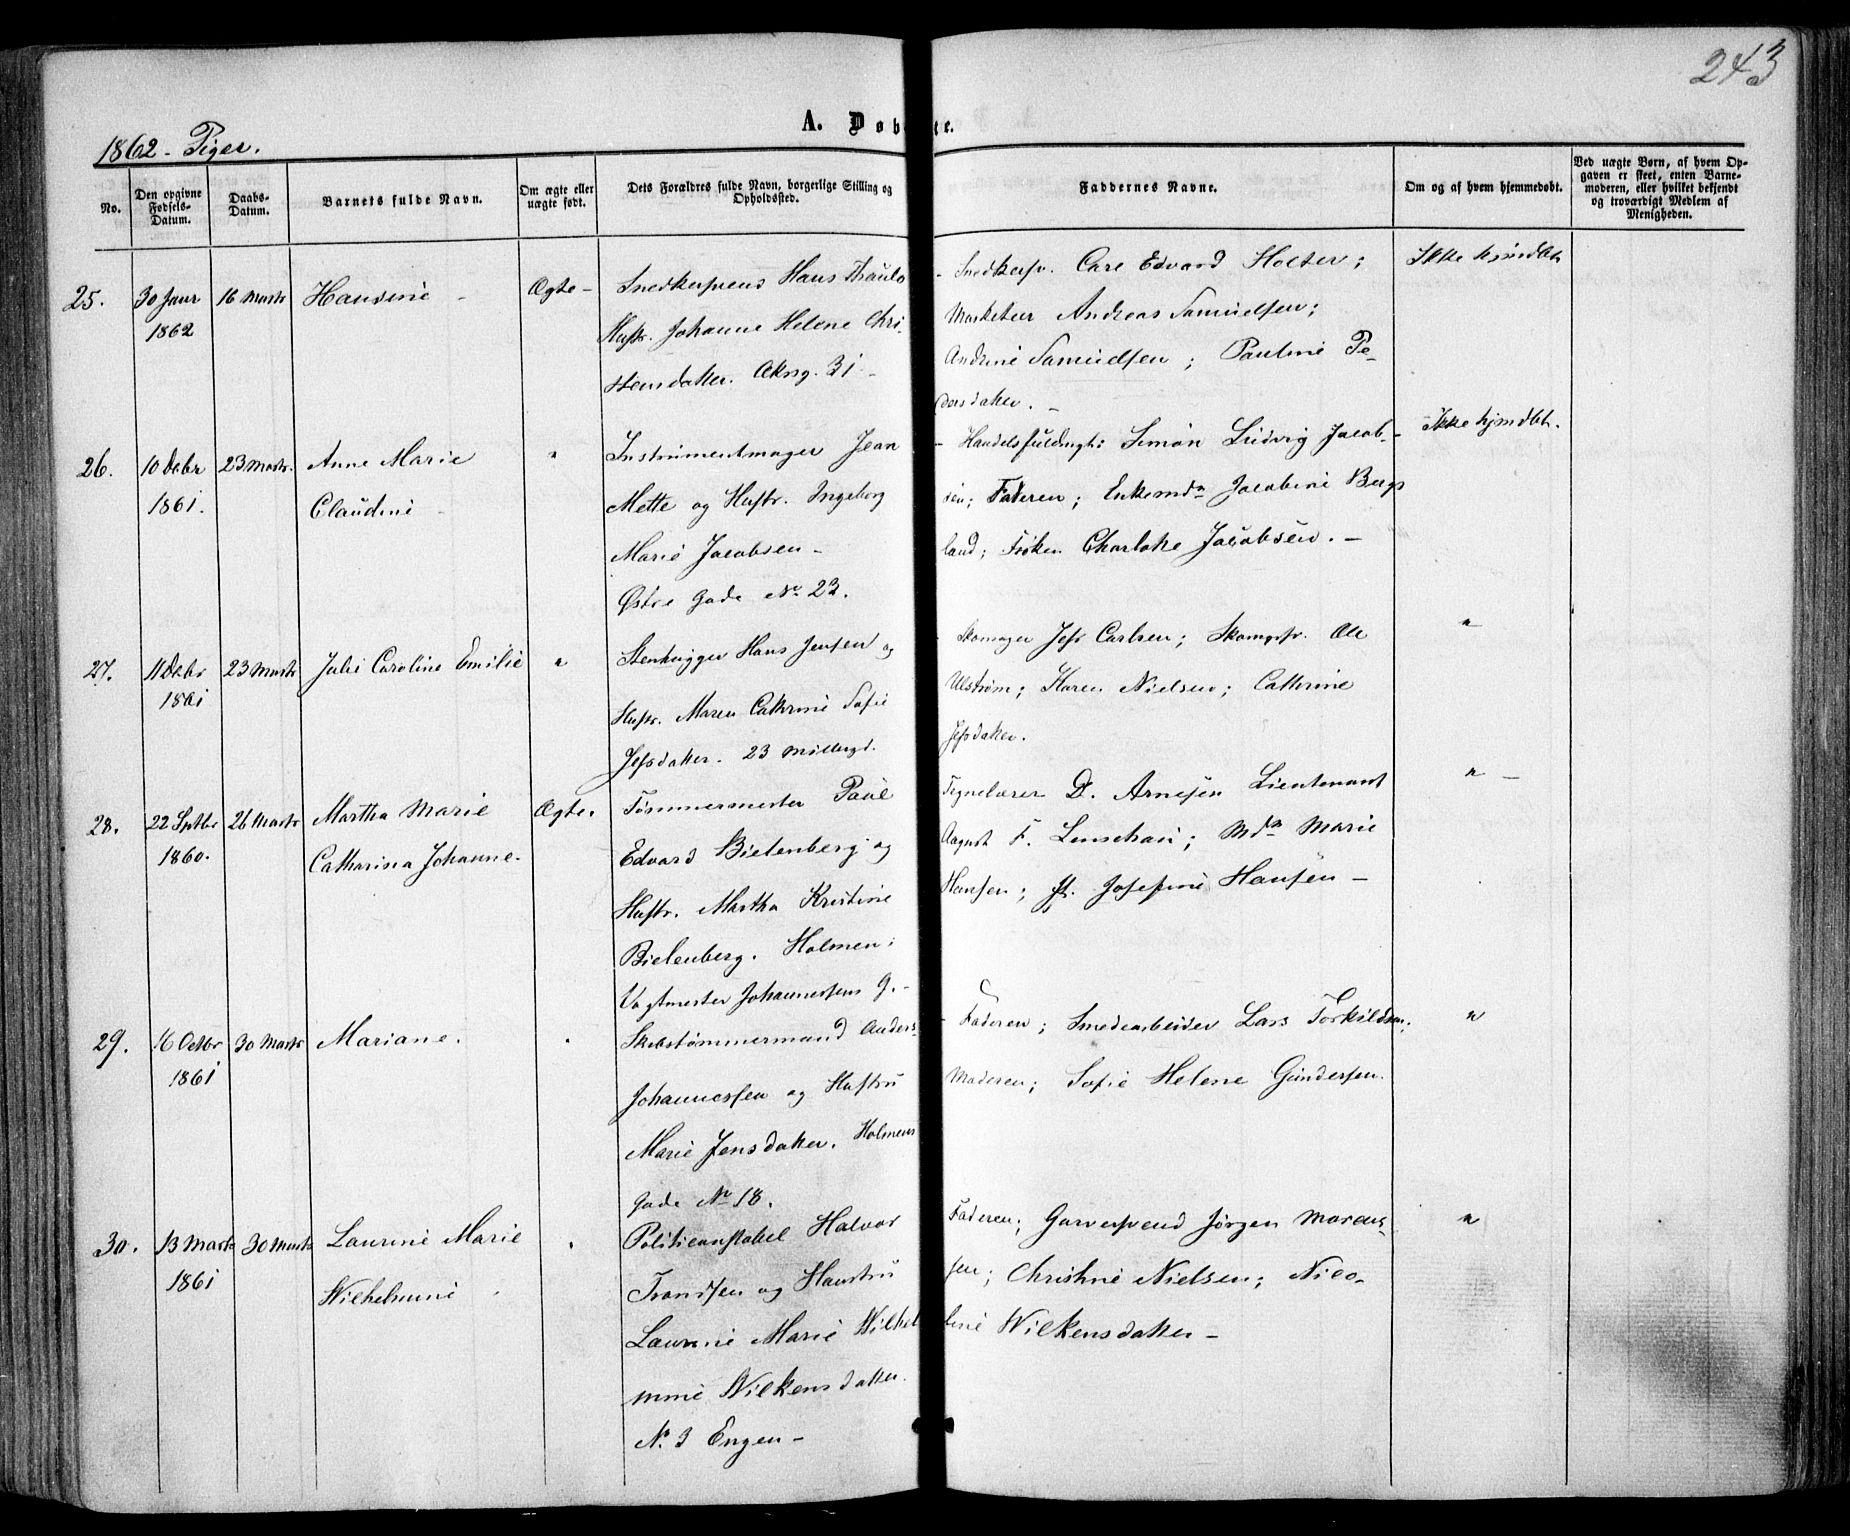 243
A. Døbte.
1862 - Piger.
No.
Den opgivne Fødsels-Datum.
Daabs-Datum.
Barnets fulde Navn.
Om ægte eller uægte født.
Dets Forældres fulde Navn, borgerlige Stilling og Opholdssted.
Faddernes Navne.
Om og af hvem hjemmedøbt.
Ved uægte Børn, af hvem Opgaven er skeet, enten Barnemoderen, eller hvilket bekjendt og troværdigt Medlem af Menigheden.
25.
30 Janr
1862
16 Marts
Hansine -
Ægte -
Snedkersvend Hans Thaulo
Hustr. Johanne Helene Chri-
stensdatter. Akrsg. 31 -
- Snedkersv. Carl Edvard Holter;
Marketeur Andreas Samuelsen;
Andrine Samuelsen; Pauline Pe-
dersdatter. -
Ikke hjmdbt
26.
10 Debr
1861.
23 Marts.
Anne Marie
Claudine -
"
Instrumentmager Jean
Mette og Hustr. Ingeborg
Marie Jacobsen -
Østre Gade No. 23.
- Handelsfuldmgt: Simon Ludvig Jacob-
sen; Faderen; Enkemdm Jacobine Berg
land; Frøken Charlotte Jacobsen. -
Ikke hjmdbt.
27.
11 Debr
1861
23 Marts
Julie Caroline Emilie
"
Stenhugger Hans Jensen og
Hustr. Maren Cathrine Sofie
Jefsdatter. 23 Møllergd.
- Skomager Jefs Carlsen; Skomgsv. Ole
Ulstrøm; Karen Nielsen; Cathrine
Jefsdatter.
"
28.
22 Septbr
1860.
26 Marts
Martha Marie
Catharina Johanne.
Ægte.
Tømmermester Paul
Edvard Bielenberg og
Hustr. Martha Kristine
Bielenberg. Holmen;
Vagtmester Johannesens G. -
Tegnelærer D. Arnesen Lieutenant
August F. Lenschau; Mdm Marie
Hansen; Jf. Josefine Hansen -
" -
29.
16 Octbr
1861
30 Marts
Mariane.
"
Skibstømmermand Anders
Johannessen og Hustru
Marie Jensdatter. Holmens
Gade No 18.
- Faderen; Smedearbeider Lars Torkildsen;
Moderen; Sofie Helene Gundersen.
"
30.
13 Marts
1861
30 Marts
Laurine Marie
Wilhelmine
"
Politiconstabel Halvor
Trondsen og Hustru
Laurine Marie Wilhel
mine Wilkensdatter.
No. 3 Engen -
Faderen; Garversvend Jørgen Marcus-
sen; Christine Nielsen; Nico-
line Wilkensdatter -
"